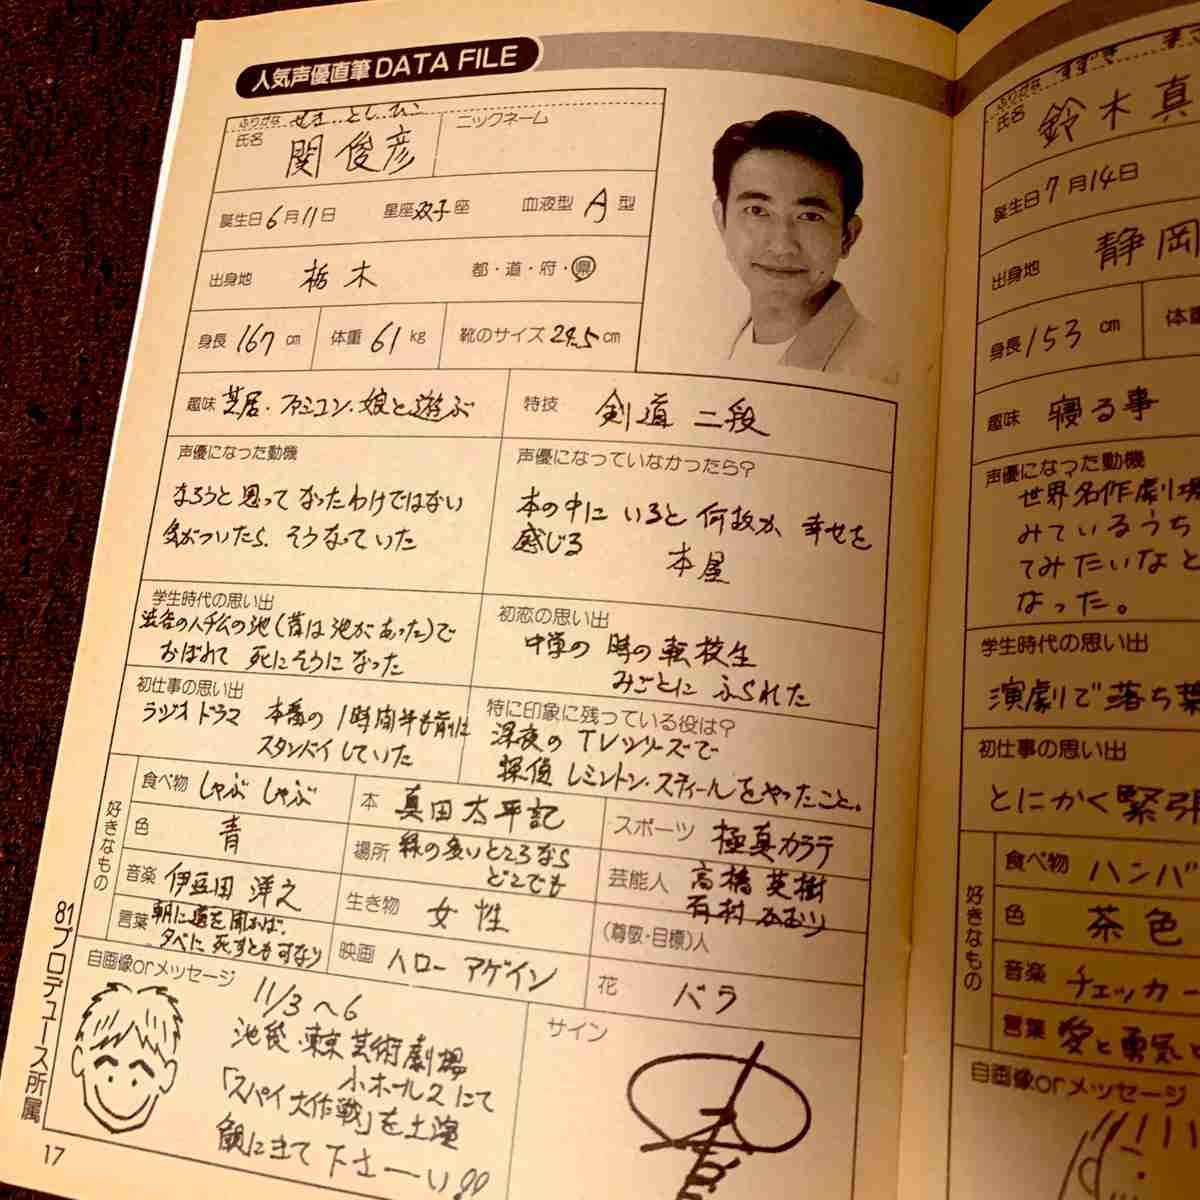 人気声優直筆DATA FILE
ふりがな せき としひこ
氏名 関俊彦
ニックネーム
誕生日 6月11日 星座 双子座 血液型 A型
出身地 栃木 都・道・府・県
身長 167cm 体重 61kg 靴のサイズ 24.5cm
趣味 芝居・ファミコン・娘と遊ぶ
特技 剣道 二段
声優になった動機
なろうと思ってなったわけではない
気がついたら、そうなっていた
声優になっていなかったら?
本の中にいると何故か幸せを
感じる 本屋
学生時代の思い出
渋谷のハチ公の池(昔は池があった)で
おぼれて死にそうになった
初恋の思い出
中学の時の転校生
みごとにふられた
初仕事の思い出
ラジオドラマ 本番の1時間半も前に
スタンバイしていた
特に印象に残っている役は?
深夜のTVシリーズで
探偵レミントン・スティールをやったこと。
好きなもの
食べ物 しゃぶしゃぶ
本 真田太平記
スポーツ 極真カラテ
色 青
場所 緑の多いところなら
どこでも
芸能人 高橋英樹
有村
音楽 伊豆田洋之
生き物 女性
(尊敬・目標)人
言葉 朝に道を聞かば、
夕べに死すとも可なり
映画 ハローアゲイン
花 バラ
自画像orメッセージ
11/3〜6
池袋・東京芸術劇場
小ホール2にて
「スパイ大作戦」を上演
観にきて下さーい!!
サイン
81プロデュース所属
17
ふりがな すずき ま
氏名 鈴木真
誕生日 7月14日
出身地 静岡
身長 153cm 体重
趣味 寝る事
声優になった動機
世界名作劇場
みているうち
てみたいなと
なった。
学生時代の思い出
演劇で落ち葉
初仕事の思い出
とにかく緊張
好きなもの
食べ物 ハンバ
色 茶色
音楽 チェッカー
言葉 愛と勇気
自画像orメッセージ